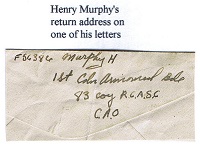 Henry Murphy's
return address on
one of his letters
F56386 Murphy H
1st Cdn Armoured Bde
83 coy R.C.A.S.C
C A O